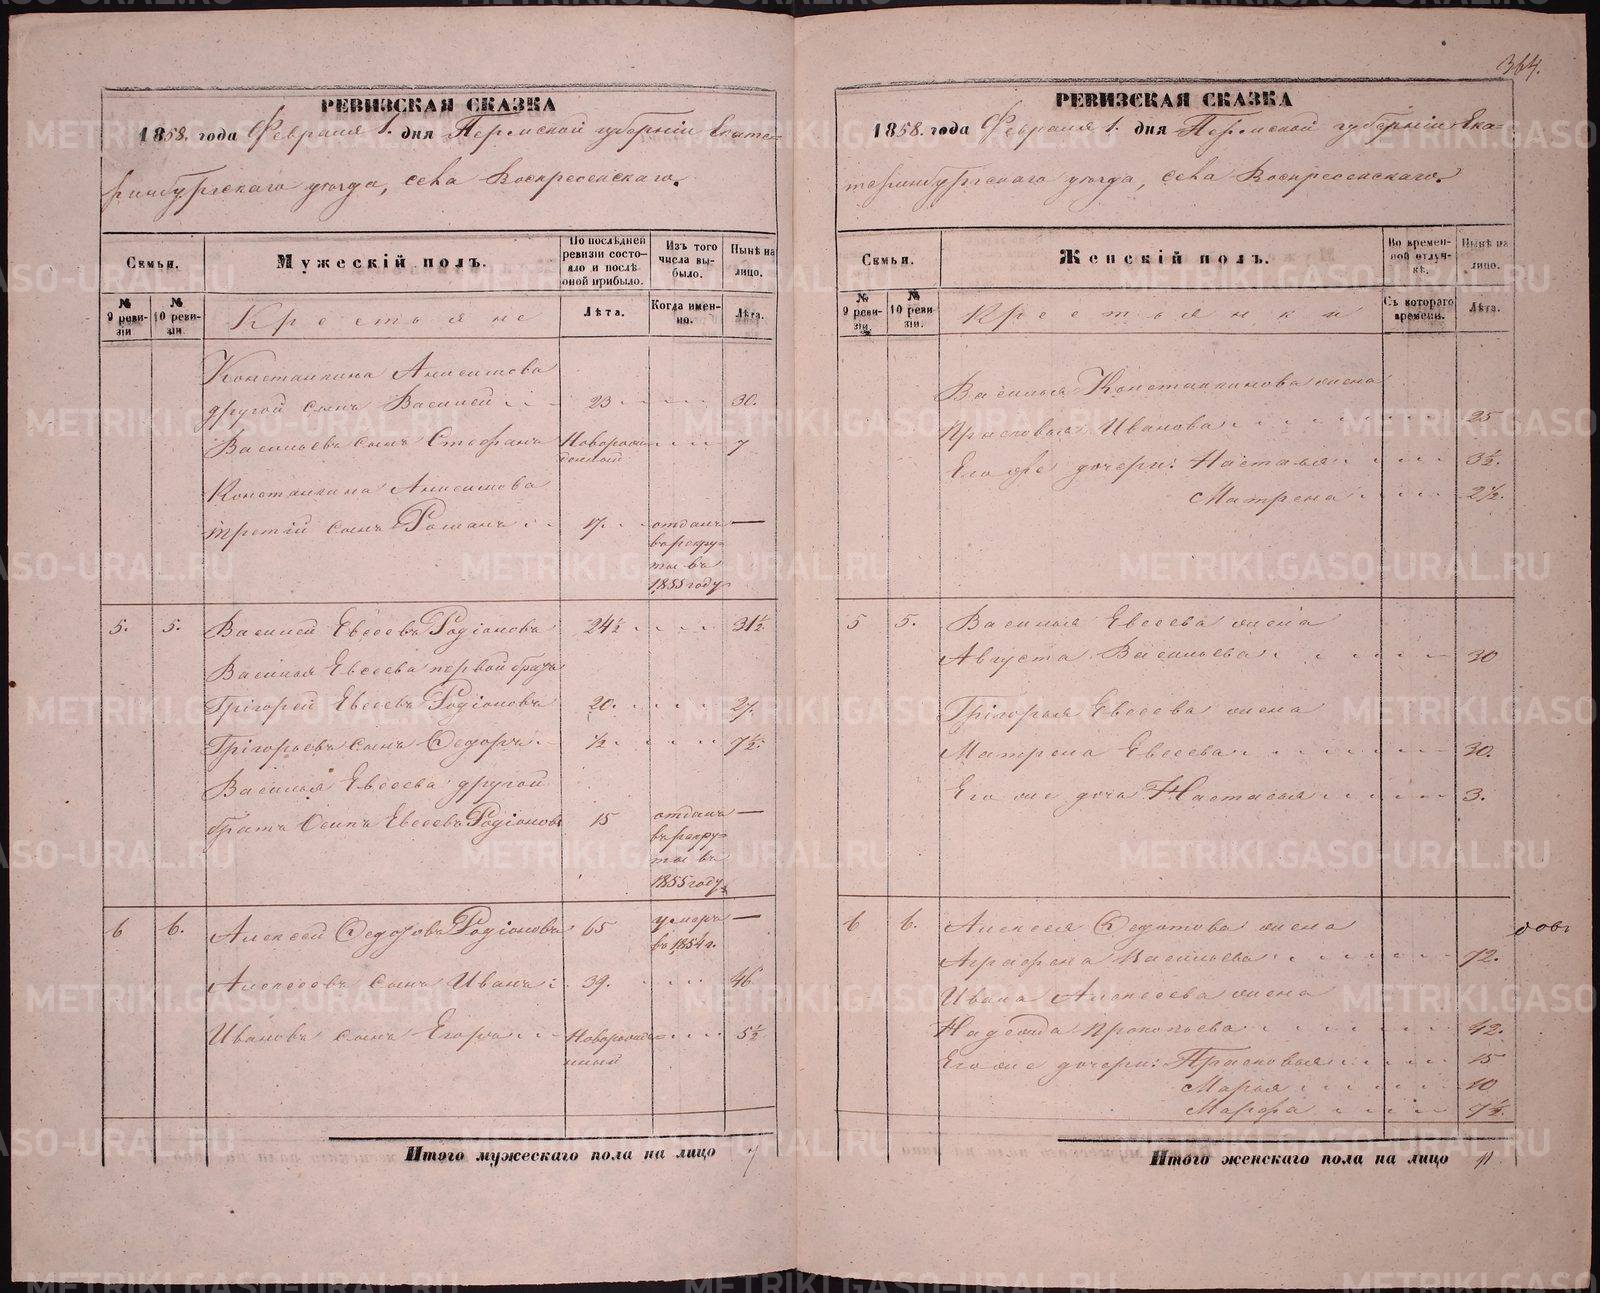 364.
РЕВИЗСКАЯ СКАЗКА
1858. года Февраля 1. дня Пермской губерніи Екате-
ринбургскаго уѣзда, села Воскресенскаго.
Семьи.
Мужескій полъ.
По послѣдней ревизіи состо-яло и послѣ оной прибыло.
Изъ того числа вы-было.
Нынѣ на лицо.
№ 9 реви-зіи
№ 10 реви-зіи
Крестьяне
Лѣта.
Когда имен-но.
Лѣта.
Константина Анисимова
другой сынъ Василей 23 30.
Васильевъ сынъ Стефанъ Новорож-денный 7
Константина Анисимова
третій сынъ Романъ 17. отданъ —
въ рекру-
ты въ
1855 году
5. 5. Василей Евсеевъ Родіоновъ 24½ 31½
Василья Евсеева первой братъ
Григорей Евсеевъ Родіоновъ 20. 27.
Григорьевъ сынъ Федоръ ½ 7½.
Василья Евсеева другой
братъ Осипъ Евсеевъ Родіоновъ 15 отданъ —
въ рекру-
ты въ
1855 году
6 6. Алексей Федотовъ Родіоновъ 65 умеръ —
въ 1854 г.
Алексеевъ сынъ Иванъ 39. 46
Ивановъ сынъ Егоръ Новорожде-нный 5½
Итого мужескаго пола на лицо 7
РЕВИЗСКАЯ СКАЗКА
1858. года Февраля 1. дня Пермской губерніи Ека-
теринбургскаго уѣзда, села Воскресенскаго.
Семьи.
Женскій полъ.
Во времен-ной отлуч-кѣ.
Нынѣ на лицо.
№ 9 реви-зіи.
№ 10 реви-зіи.
Крестьянки
Съ котораго времени.
Лѣта.
Василья Константинова жена
Прасковья Иванова 25
Его же дочери: Настасья 3½.
Матрена 2½.
5 5. Василья Евсеева жена
Августа Васильева 30
Григорья Евсеева жена
Матрена Евсеева 30.
Его же дочь Настасья 3.
6 6. Алексея Федотова жена
Аграфена Васильева 72.
Ивана Алексеева жена
Надежда Прокопьева 42.
Его же дочери: Прасковья 15
Марья 10
Марфа 7½.
Итого женскаго пола на лицо 11
METRIKI.GASO-URAL.RU